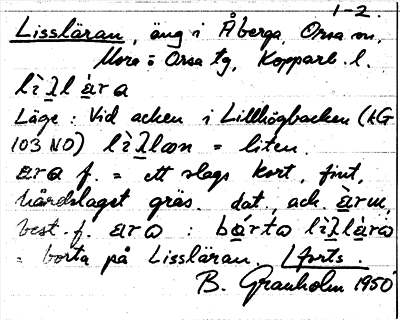 1-2.
Lissläran, äng i Åberga, Orsa sn,
Mora o Orsa tg, Kopparb. l.
lìʎl ära
Läge: Vid acken i Lillhögbacken (kG
103 NO) lìʎlæn = liten.
æra f. = ett slags kort, fint,
hårdslaget gräs. dat., ack. ærụ,
best. f. æra : bǫrto lìʎlæra
= borta på Lissläran. Lforts.
B. Granholm 1950